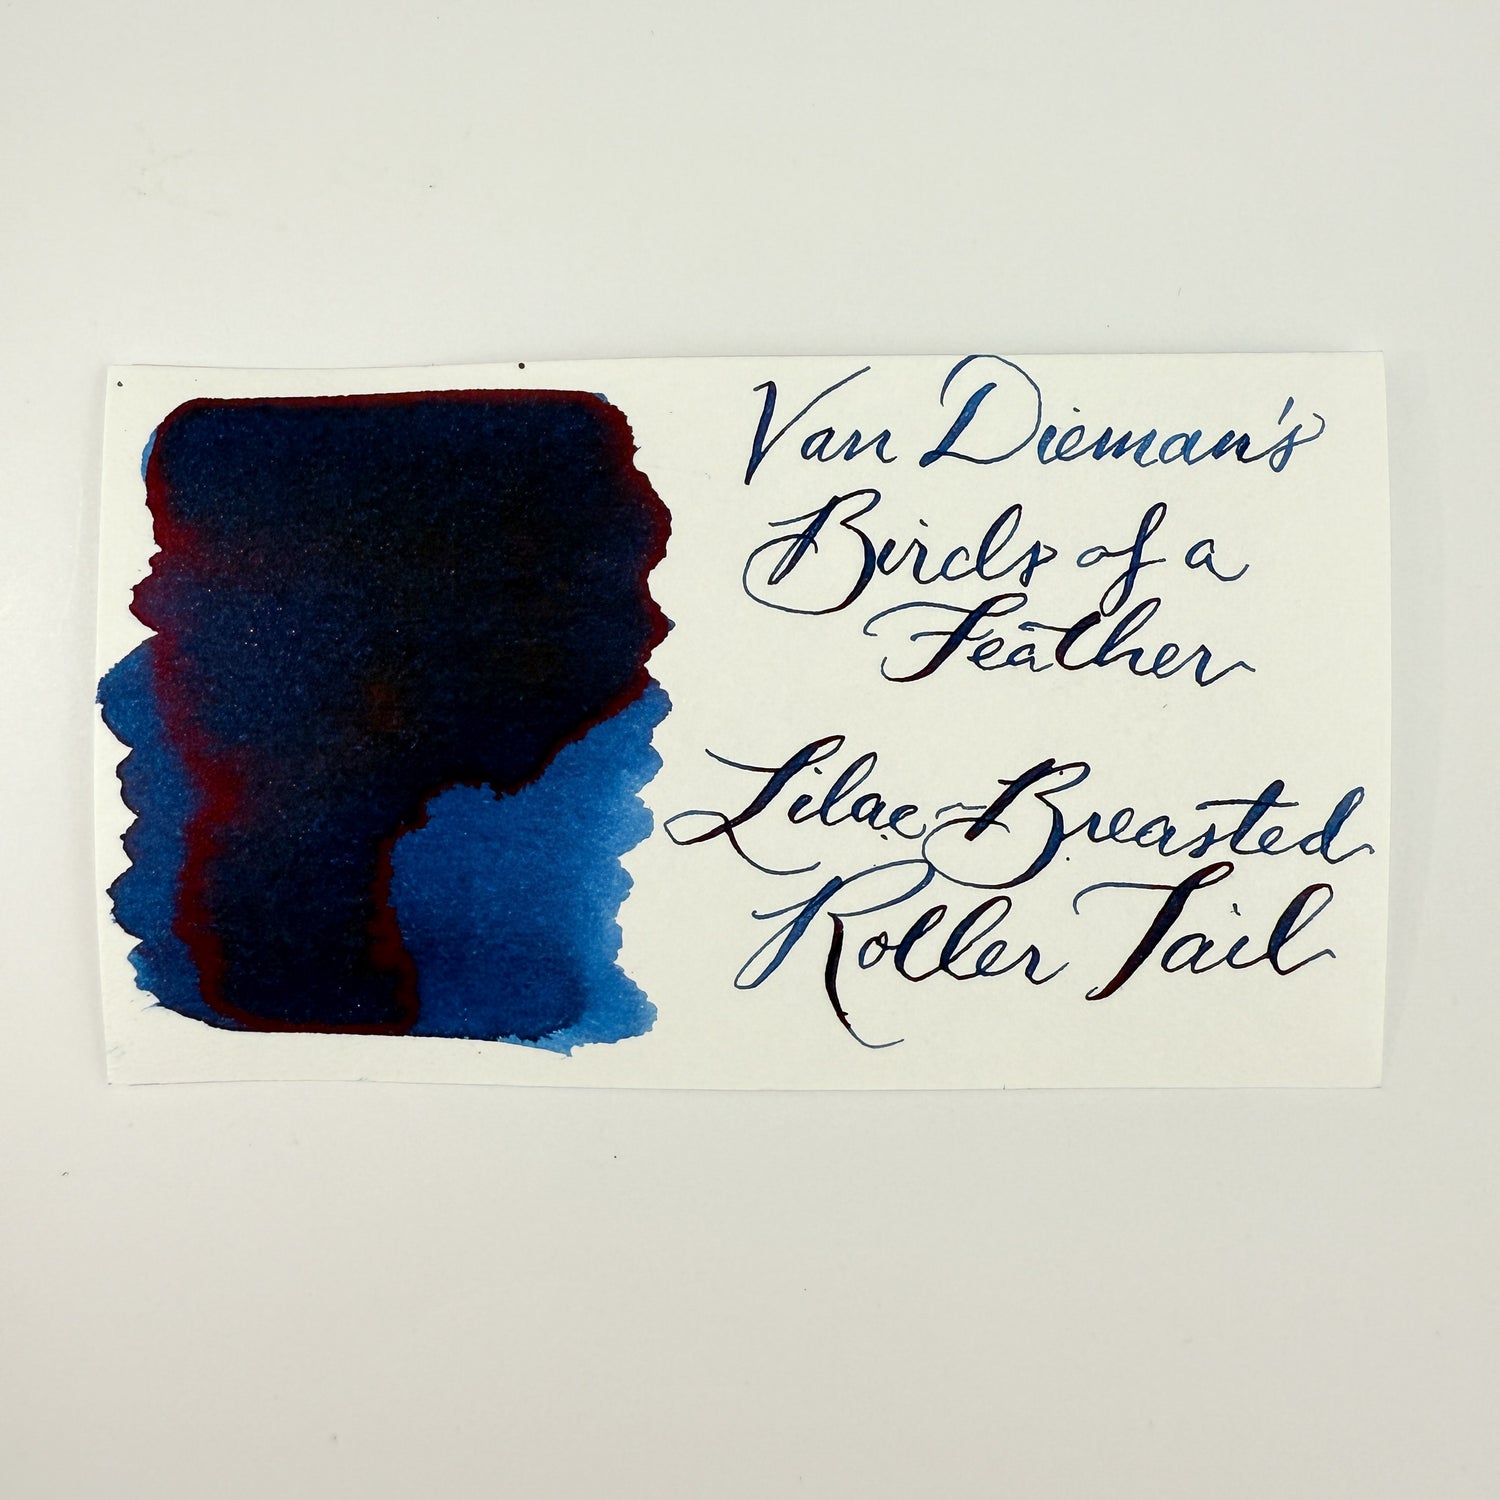 Van Dieman's
Birds of a
Feather
Lilac-Breasted
Roller Tail